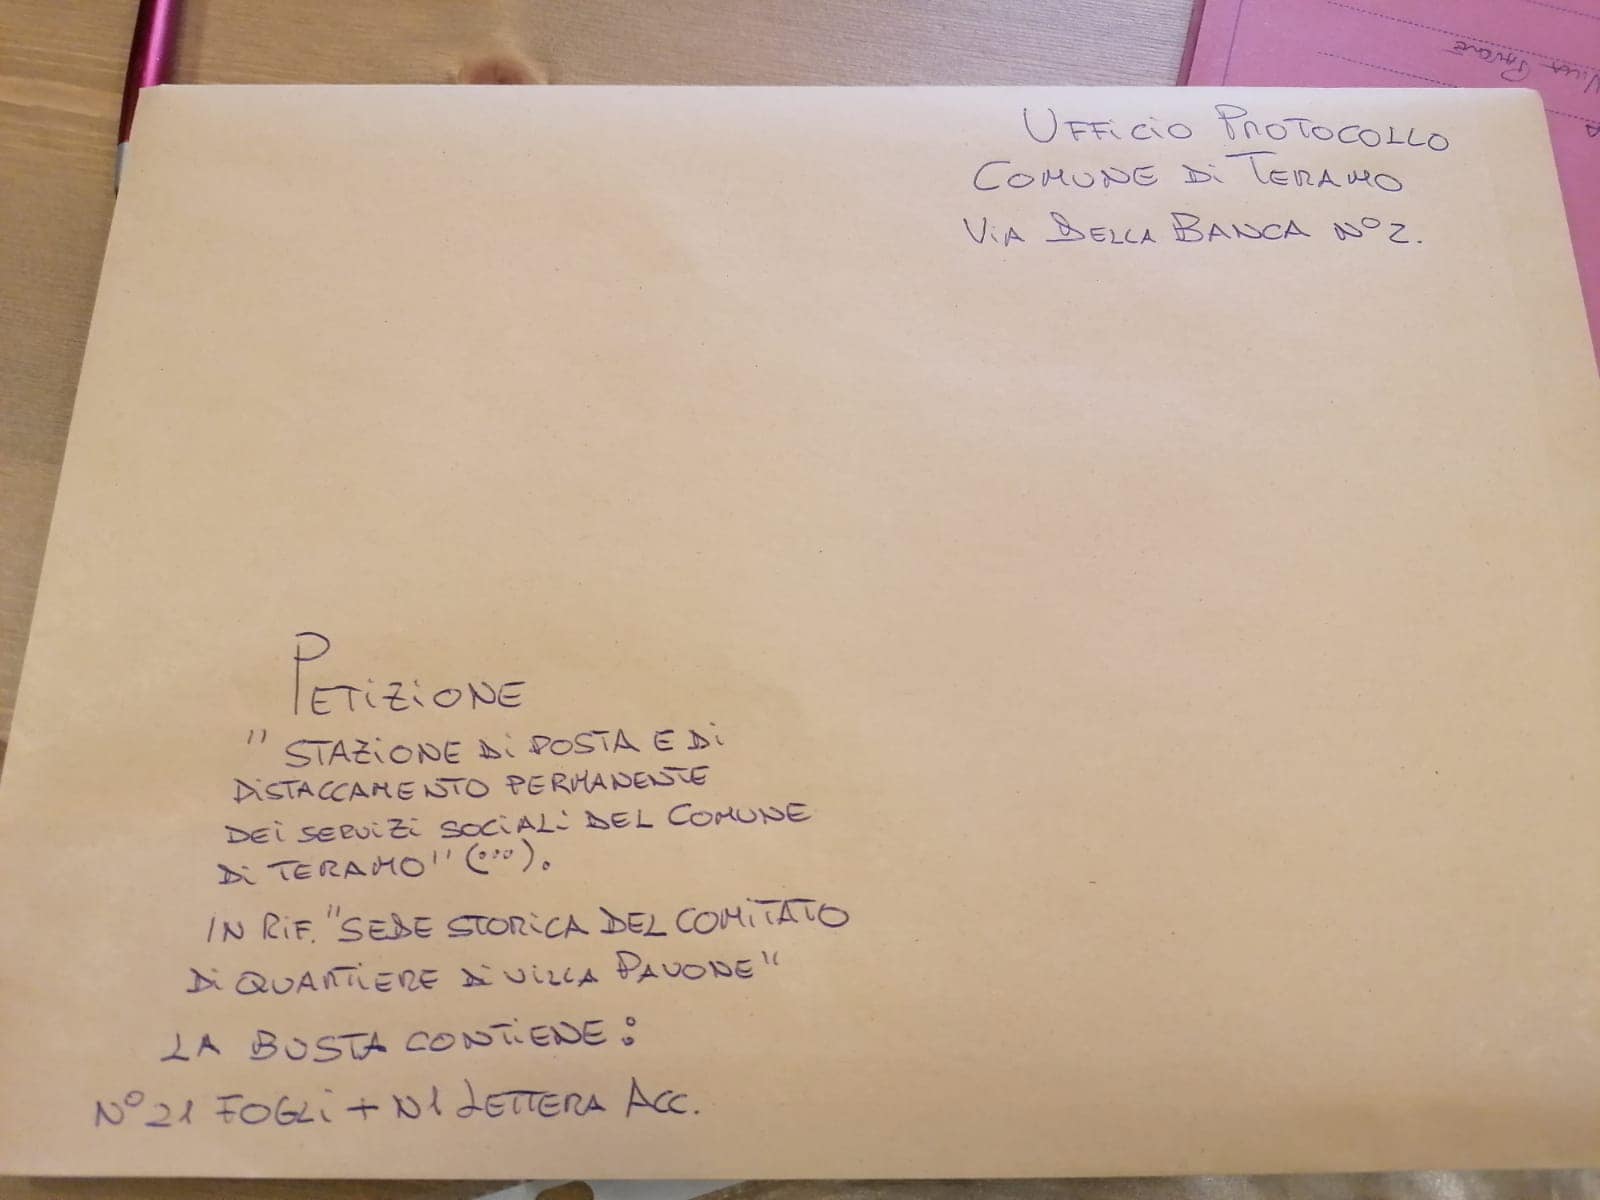 Villa Pavone
UFFICIO PROTOCOLLO
COMUNE DI TERAMO
VIA DELLA BANCA N° 2.
PETIZIONE
"STAZIONE DI POSTA E DI
DISTACCAMENTO PERMANENTE
DEI SERVIZI SOCIALI DEL COMUNE
DI TERAMO" (...).
IN RIF. "SEDE STORICA DEL COMITATO
DI QUARTIERE DI VILLA PAVONE"
LA BUSTA CONTIENE:
N° 21 FOGLI + N1 LETTERA ACC.